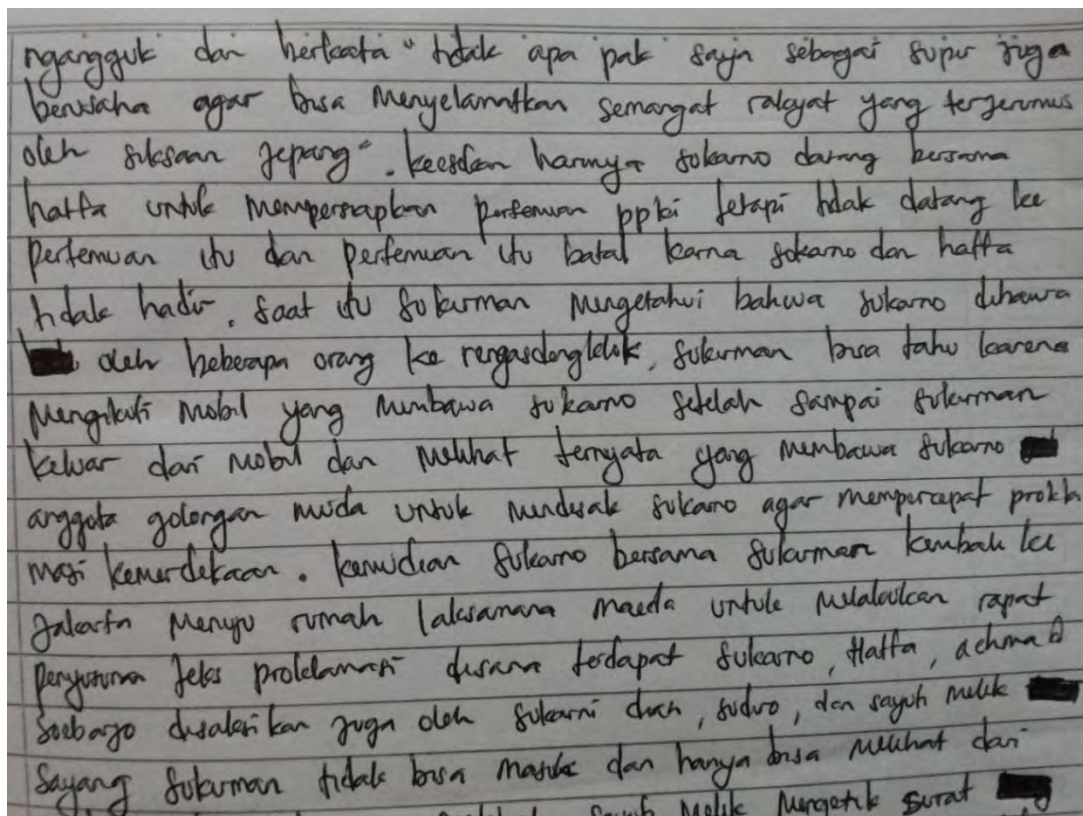 ngangguk dan berkata "tidak apa pak saya sebagai supir juga
berusaha agar bisa menyelamatkan semangat rakyat yang terjerumus
oleh siksaan jepang". keesokan harinya sukarno datang bersama
hatta untuk mempersiapkan pertemuan ppki tetapi tidak datang ke
pertemuan itu dan pertemuan itu batal karna sokarno dan hatta
tidak hadir. saat itu sukurman mengetahui bahwa sukarno dibawa
oleh beberapa orang ke rengasdengklok, sukurman bisa tahu karena
mengikuti mobil yang membawa sukarno setelah sampai sukurman
keluar dari mobil dan melihat ternyata yang membawa sukarno
anggota golongan muda untuk mendesak sukarno agar mempercepat prokla
masi kemerdekaan. kemudian sukarno bersama sukurman kembali ke
jakarta menuju rumah laksamana maeda untuk melakukan rapat
penyusunan teks proklamasi disana terdapat sukarno, Hatta, achmad
soebarjo disaksikan juga oleh sukarni, sudiro, dan sayuti melik
sayang sukurman tidak bisa masuk dan hanya bisa melihat dari
sayuti melik mengetik surat